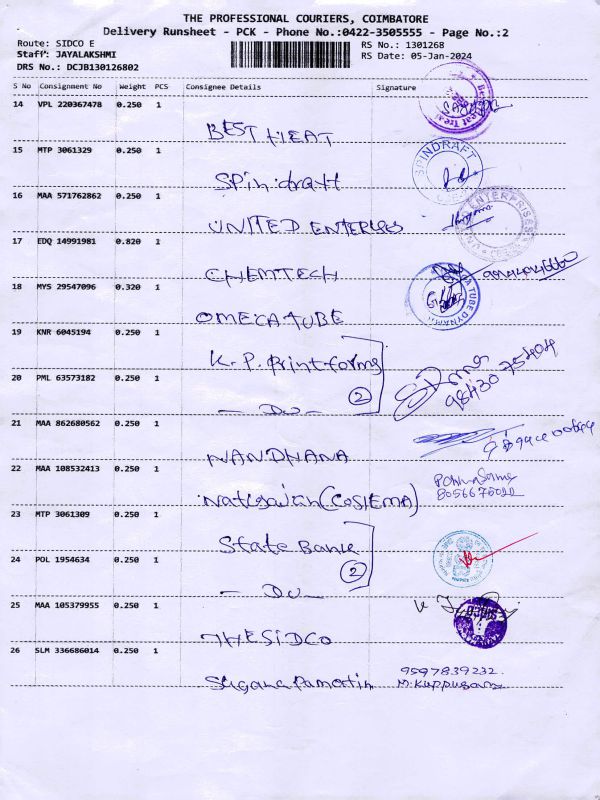 THE PROFESSIONAL COURIERS, COIMBATORE
Delivery Runsheet - PCK - Phone No.:0422-3505555 - Page No.:2
Route: SIDCO E
RS No.: 1301268
Staff: JAYALAKSHMI
RS Date: 05-Jan-2024
DRS No.: DCJB130126802
S No Consignment No Weight PCS Consignee Details Signature
14 VPL 220367478 0.250 1
BEST HEAT
15 MTP 3061329 0.250 1
SPINDRAFT
Spindraft
16 MAA 571762862 0.250 1
ENTERPRISES
UNITED ENTERPRISES
17 EDQ 14991981 0.820 1
CHEMTECH
18 MYS 29547096 0.320 1
OMEGA TUBE
19 KNR 6045194 0.250 1
K.P. Print forms
20 PML 63573182 0.250 1
2
98430 75404
- Do -
21 MAA 862680562 0.250 1
NANDHANA
22 MAA 108532413 0.250 1
8056675022
Natesaian (COSIEMA)
23 MTP 3061309 0.250 1
State Bank
24 POL 1954634 0.250 1
2
- Do -
25 MAA 105379955 0.250 1
THE SIDCO
26 SLM 336686014 0.250 1
9597839232
M. Kuppusamy